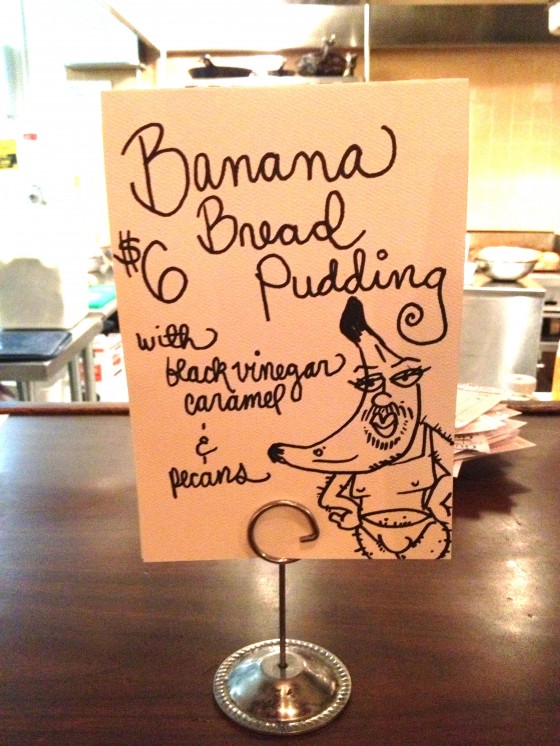 Banana
Bread
$6
Pudding
with
black vinegar
caramel
&
pecans